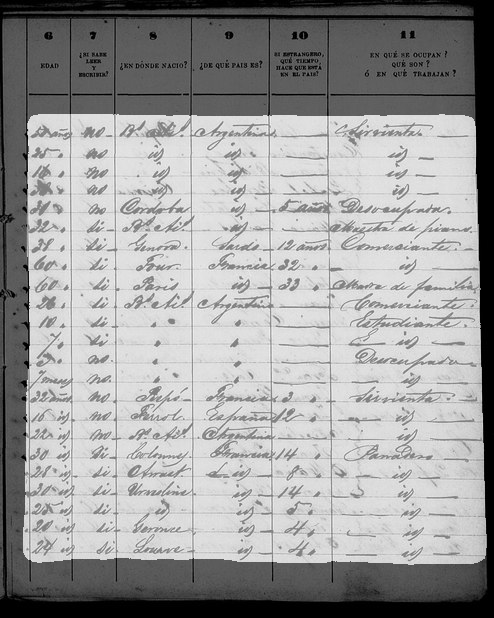 6 7 8 9 10 11
EDAD ¿SI SABE LEER Y ESCRIBIR? ¿EN DÓNDE NACIO? ¿DE QUÉ PAIS ES? SI ESTRANGERO, QUÉ TIEMPO HACE QUE ESTÁ EN EL PAIS? EN QUÉ SE OCUPAN? QUÉ SON? Ó EN QUÉ TRABAJAN?
años no Bs. Ais. Argentina — Sirvienta
25 " no id id — id —
no id id — id —
no id id — id —
30 " no Cordoba id — 5 años Desocupada.
32 " si — Bs. Ais. id — — Maestra de piano.
38 " si — Genova. Sardo — 12 anos Comerciante —
60 " si — Francia 32 " — id —
60 " si — Paris id — 33 " Madre de familia
26 " si — Bs. Ais. Argentina — Comerciante.
10 " si — " " — Estudiante.
si — " " — — id —
no. " " — Desocupado —
7 meses no. " " — — id —
32 años no. Francia 3 " Sirvienta. —
16 id no. Ferol España 12 — id —
22 id no — Bs. Ais. Argentina — — id —
30 id Si — Francia 14 " Panadero
28 id si — id — 8 " — id —
30 id si — id — 14 " id —
25 id si — id id — 5 " — id —
20 id si — id — 4 " — id —
24 id si — id — 4 " — id —